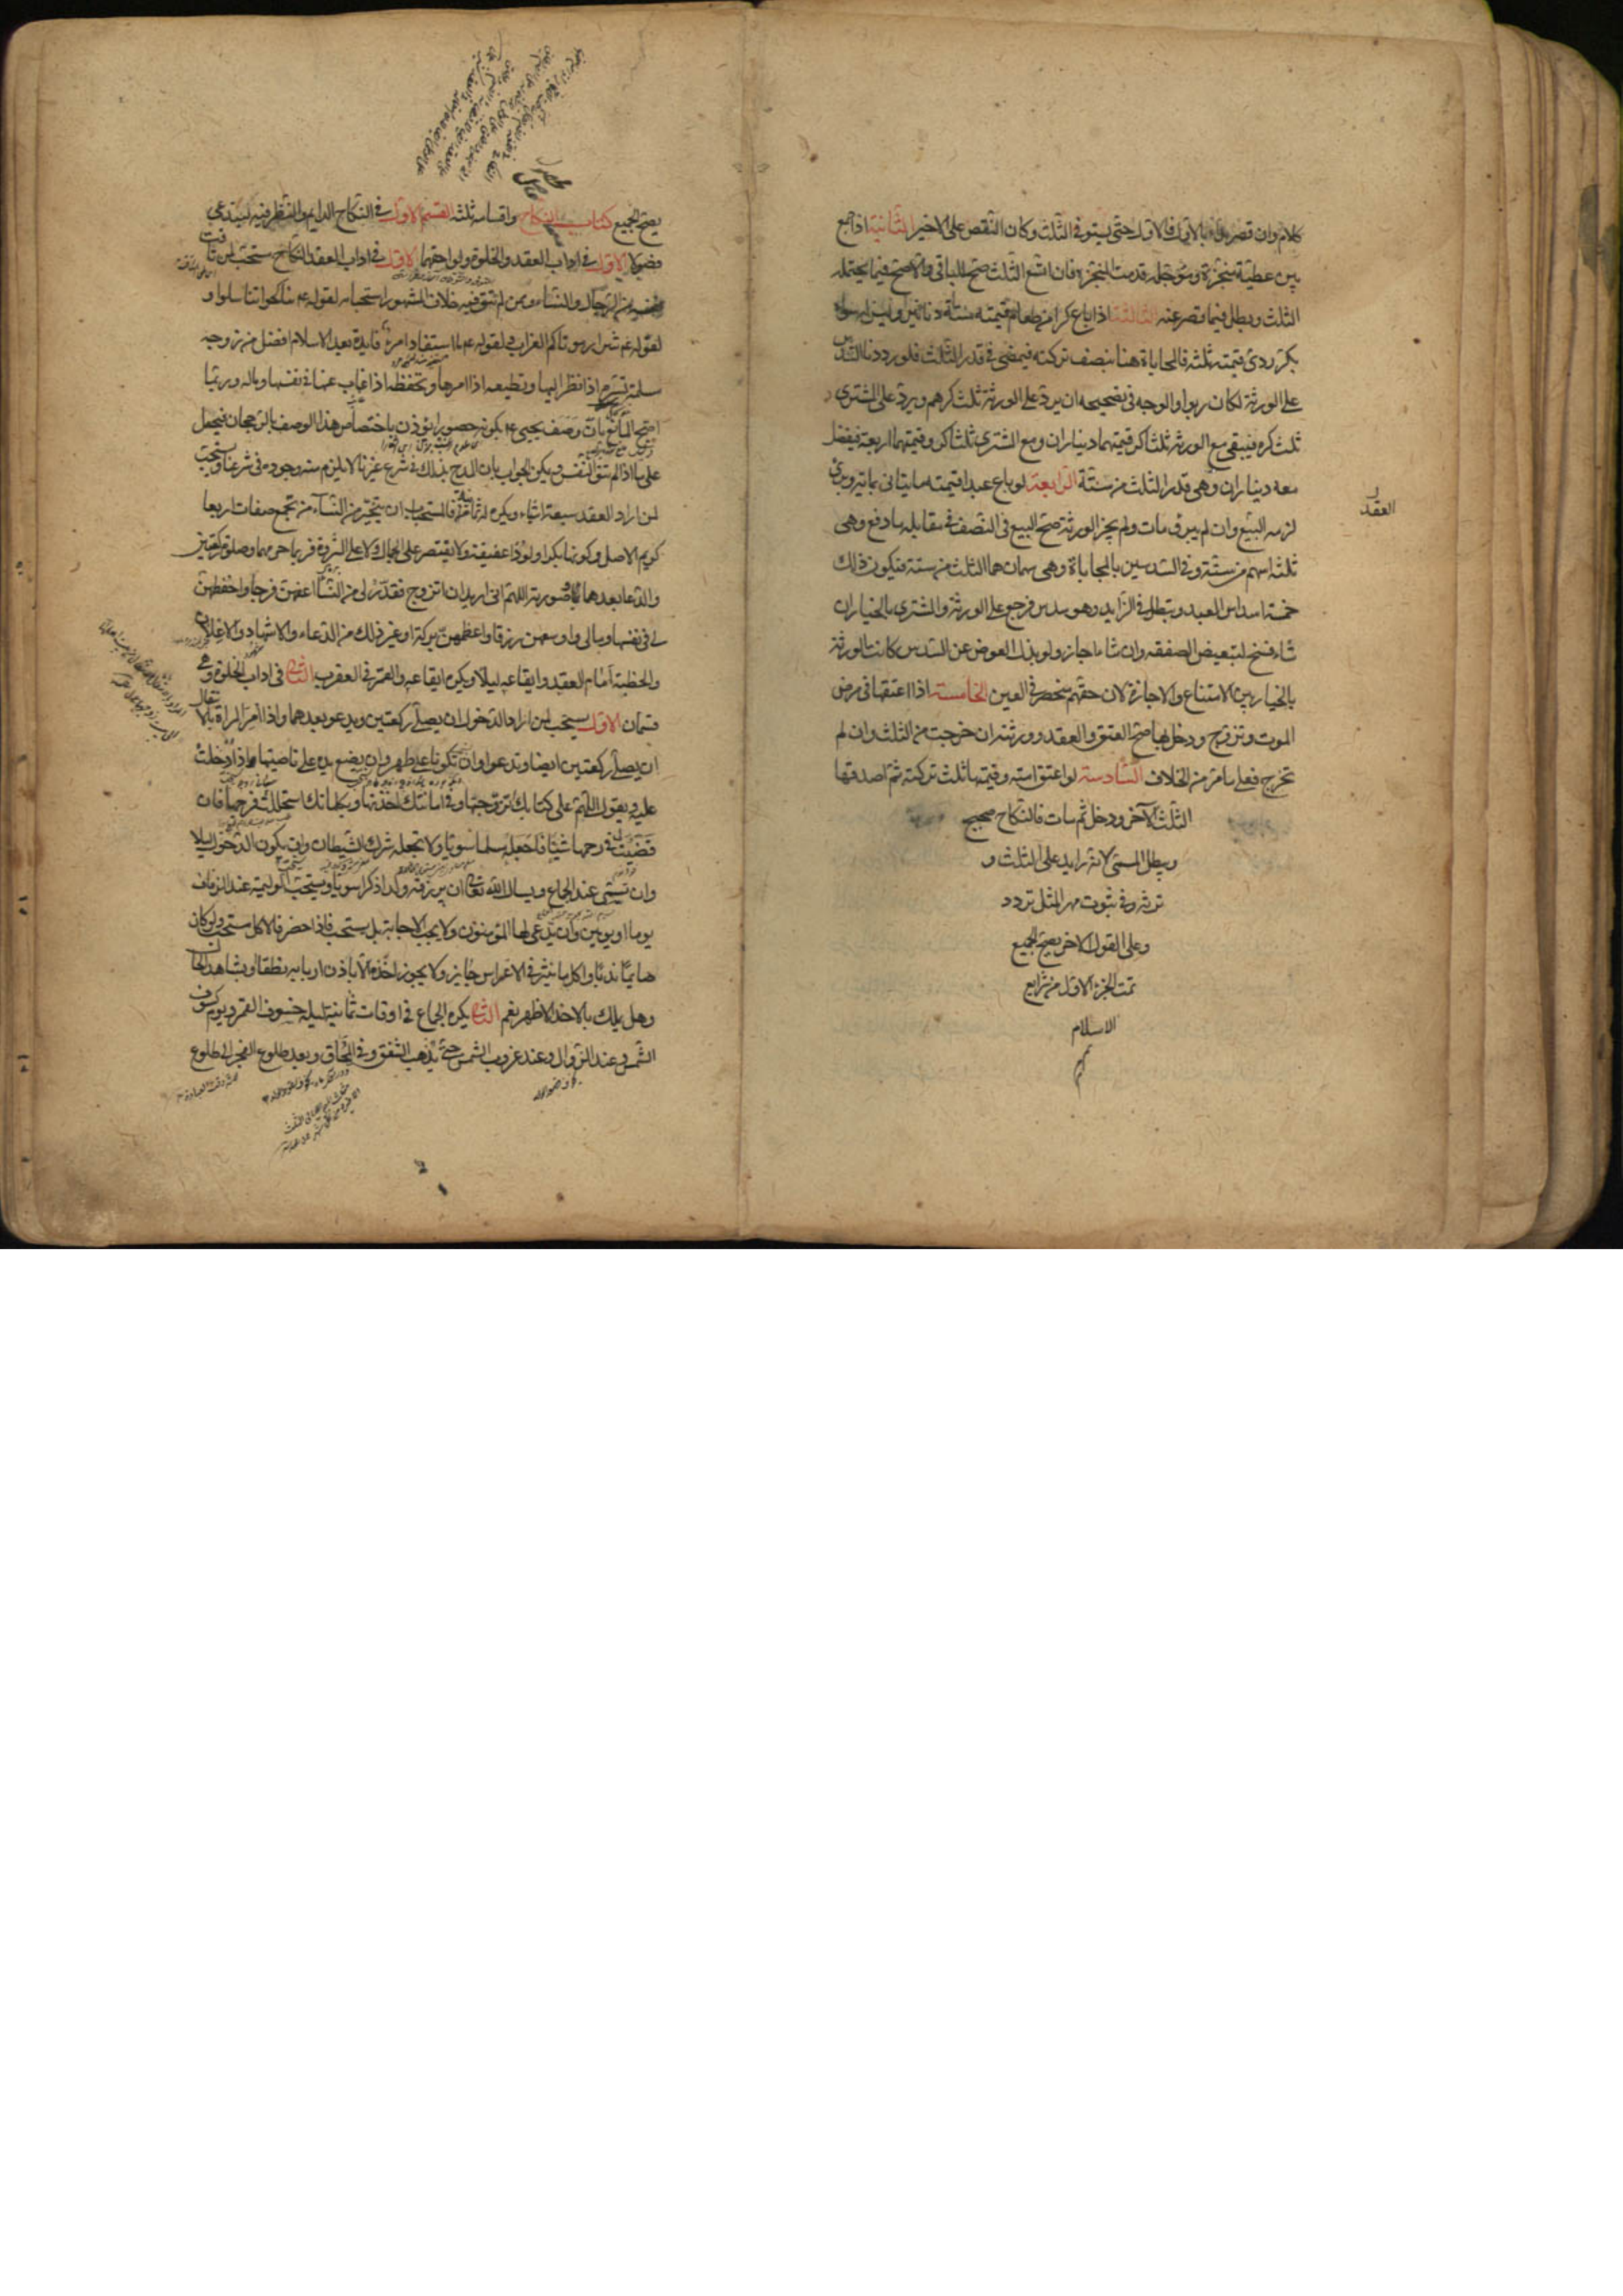 كلام وان قصر بدأ بالاول فالاول حتى يستوفى الثلث وكان النقص على الاخير الثانية اذا جمع
بين عطية منجزة ومؤجلة قدمت المنجزة فان اتسع الثلث صح للباقى والا صح فيما يحتمله
الثلث وبطل فيما قصر عنه الثالثة اذا باع كرا من طعام قيمته ستة دنانير وليس له سواه
بكر ردى قيمته ثلثه فالمحاباة هنا بنصف تركته فيمضى فى قدر الثلث فلو رددنا السدس
على الورثة لكان ربوا والوجه فى تصحيحه ان يرد على الورثة ثلث كرهم ويرد على المشترى
ثلث كره فيبقى مع الورثه ثلثا كر قيمتهما ديناران ومع المشترى ثلثا كر وقيمتهما اربعة فيفضل
معه ديناران وهى قدر الثلث من ستة الرابعة لو باع عبدا قيمته مايتان بماية وبرئ
العقد
لزمه البيع وان لم يبرق مات ولم يجز الورثة صح البيع فى النصف فى مقابله ما دفع وهى
ثلثه اسهم من ستة وفى السدسين بالمحاباة وهى سهمان هما الثلث من ستة فيكون ذلك
خمسة اسداس العبد وبطل فى الزايد وهو سدس فرجع على الورثة والمشترى بالخيار ان
شاء فسخ لتبعيض الصفقه وان شاء اجاز ولو بذل العوض عن السدس كانت الورثة
بالخيار بين الامتناع والاجازة لان حقهم منحصر فى العين الخامسة اذا اعتقها فى مرض
الموت وتزوج ودخل بها صح العتق والعقد وورثته ان خرجت من الثلث وان لم
تخرج فعلى ما مر من الخلاف السادسة لو اعتق امته وقيمتها ثلث تركته ثم اصدقها
الثلث الآخر ودخل ثم مات فالنكاح صحيح
ويبطل المسمى لانه زايد على الثلث و
ترثه وفى ثبوت مهر المثل تردد
وعلى القول الاخر يصح الجميع
تمت الجزء الاول من شرايع
الاسلام
يصح الجميع كتاب النكاح واقسامه ثلثه القسم الاول فى النكاح الدايم والنظر فيه يستدعى
فصولا الاول فى اداب العقد والخلوة ولواحقهما الاول فى اداب العقد النكاح مستحب لمن تاقت
نفسه من الرجال والنساء ومن لم تتق فيه خلاف المشهور استحبابه لقوله ع تناكحوا تناسلوا و
لقوله ع شرار موتاكم العزاب لقوله ع ما استفاد امرء فايدة بعد الاسلام افضل من زوجه
مسلمة تسره اذا نظر اليها وتطيعه اذا امرها وتحفظه اذا غاب عنها فى نفسها وماله وربما
احتج المانع بان وصف يحيى ع بكونه حصورا يؤذن باختصاص هذا الوصف بالرجحان فيحمل
على ما اذا لم تتق النفس ويمكن الجواب بان المدح بذلك فى شرع غيرنا لا يلزم منه وجوده فى شرعنا ويستحب
لمن اراد العقد سبعة اشياء ويكره له ثمانية فالمستحب ان يتخير من النساء من تجمع صفات اربعا
كريم الاصل وكونها بكرا ولودا عفيفة ولا يقتصر على الجمال ولا على الثروة فربما حرمهما وصلوة ركعتين
والدعا بعدهما وصورته اللهم انى اريد ان اتزوج فقدر لى من النساء اعفهن فرجا واحفظهن
لى فى نفسها ومالى واوسعهن رزقا واعظمهن بركة او غير ذلك من الدعاء والاشهاد والاعلان
والخطبة امام العقد وايقاعه ليلا ويكره ايقاعه والقمر فى العقرب الثانى فى اداب الخلوة وهى
قسمان الاول يستحب لمن اراد الدخول ان يصلى ركعتين ويدعو بعدهما واذا امر المراة بالانتقال
ان يصلى ركعتين ايضا وتدعو وان تكونا على طهر وان يضع يده على ناصيتها اذا ادخلت
عليه ويقول اللهم على كتابك تزوجتها وفى امانتك اخذتها وبكلماتك استحللت فرجها فان
قضيت فى رحمها شيئا فاجعله مسلما سويا ولا تجعله شرك الشيطان وان يكون الدخول ليلا
وان يسمى عند الجماع ويسال الله تعالى ان يرزقه ولدا ذكرا سويا ويستحب الوليمة عند الزفاف
يوما او يومين وان يدعى لها المؤمنون ولا يجب الاجابة بل يستحب فاذا حضر فالاكل مستحب ولو كان
صايما ندبا واكل ما ينثر فى الاعراس جايز ولا يجوز اخذه الا باذن اربابه نطقا او بشاهد الحال
وهل يملك بالاخذ الاظهر نعم الثانى يكره الجماع فى اوقات ثمانية ليلة خسوف القمر ويوم كسوف
الشمس وعند الزوال وعند غروب الشمس حتى يذهب الشفق وفى المحاق وبعد طلوع الفجر الى طلوع